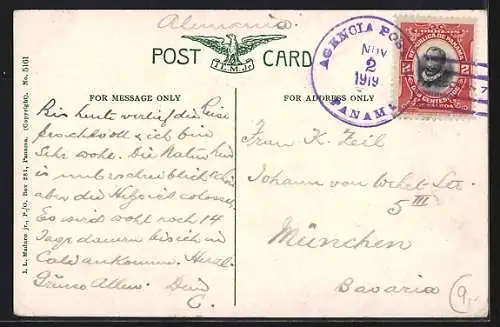 Alemania.
POST CARD
I.L.M.Jr.
AGENCIA POS
NOV
2
1919
PANAM
CORREOS
REPUBLICA DE PANAMA
2 2
FOR MESSAGE ONLY
FOR ADDRESS ONLY
I. L. Maduro jr., P./O. Box 281, Panama. (Copyright). No. 5161
Bis heute verlief die Reise
prachtvoll & ich bin
sehr wohl. Die Natur hier
ist unbeschreiblich schön
aber die Hitze ist colossal.
Es wird wohl noch 14
Tage dauern bis ich in
Cali ankomme. Herzl.
Grüsse Allen. Dein
C.
Frau K. Zeil
Johann von Str.
5 III
München
Bavaria
9,-